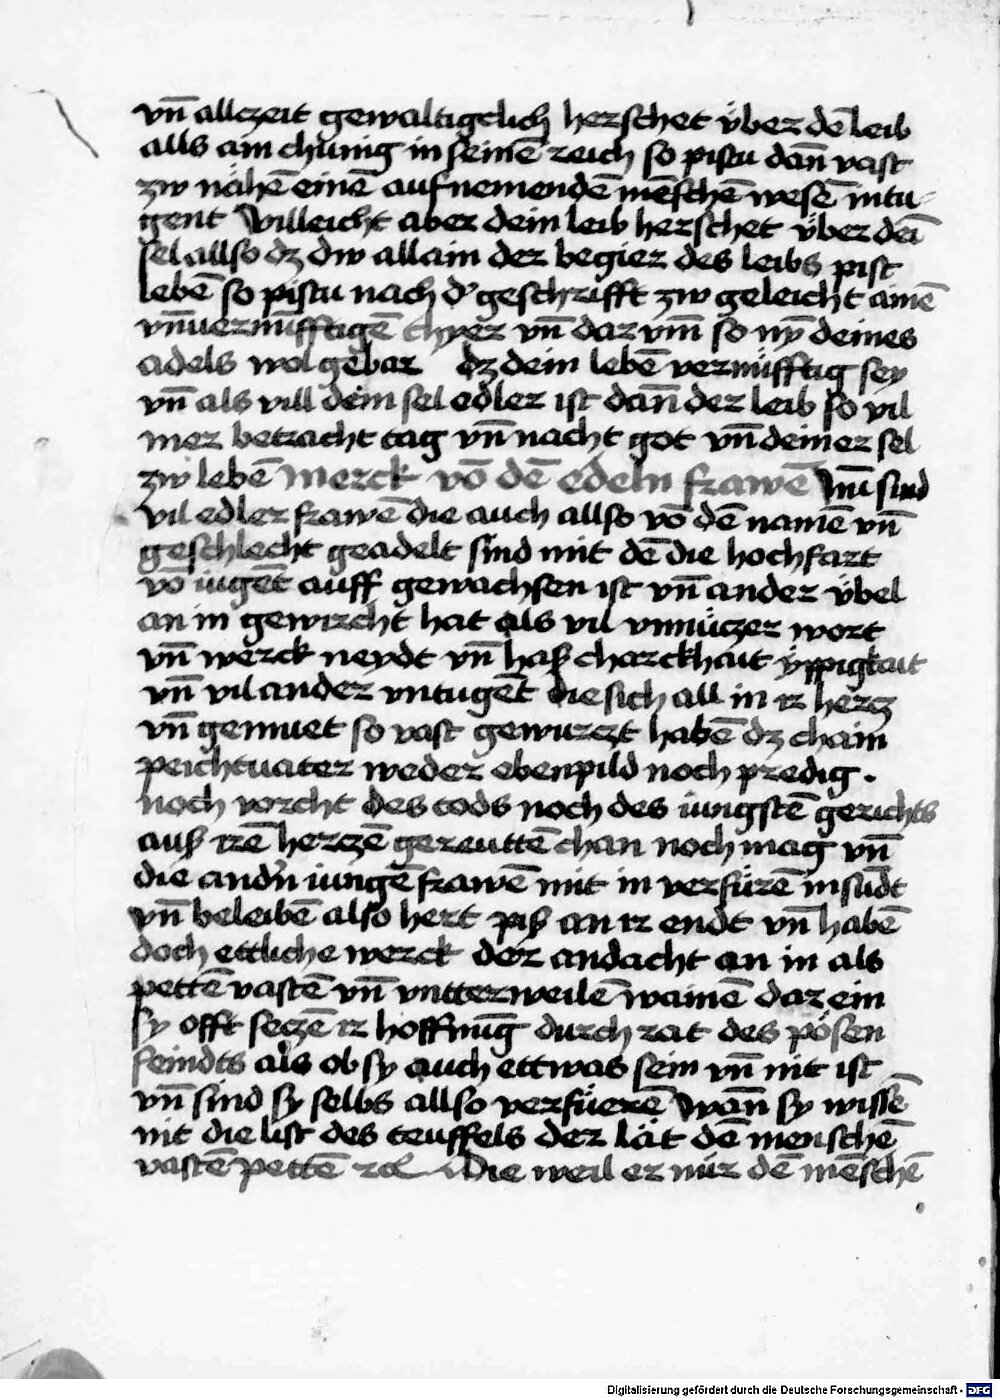 vn̄ allczeit gewaltigclich herschet v̈ber dē leib
alls ain chünig in seinē reich so pistu dan̄ vast
zw nähē einē auf nemendē mēschē wesē in tu-
gent Villeicht aber dein leib herschet v̈ber dei
sel allso dz dw allain der begier des leibs pist
lebē so pistu nach d' geschrifft zw geleicht ainē
vn̄uernüfftigē thyer vn̄ dar vm̄ so nÿ deines
adels wol gebar dz dein lebē vernüfftig sey
vn̄ als vill dein sel edler ist dan̄ der leib so vil
mer betracht tag vn̄ nacht got vn̄ deiner sel
zw lebē Merck vō dē edeln frawē Nu sind
vil edler frawē die auch allso vō dē namē vn̄
geschlecht geadelt sind mit dē die hochfart
vō iugēt auff gewachsen ist vn̄ ander v̈bel
an in gewircht hat als vil vnnüczer wort
vn̄ werck neydt vn̄ haß charckhait ÿppigkait
vn̄ vil ander vntugēt die sich all in ir hercz
vn̄ gemuet so vast gewurczt habē dz chain
peichtuater weder ebenpild noch predig .
noch vorcht des tods noch des iungstē gerichts
auß irē herczē gereuttē chan noch mag vn̄
die andn̄ iungē frawē mit in verfürē in sudt
vn̄ beleibē also hert piß an ir endt vn̄ habē
doch ettliche werck der andacht an in als
pettē vastē vn̄ vntterweilē wainē dar ein
sy offt seczē ir hoffnūg durch rat des pösen
feindts als ob sy auch ettwas sein vn̄ nit ist
vn̄ sind sy selbs allso verfüerē Wan̄ sy wissē
nit die list des teuffels der lät dē menschē
vastē pettē rc̄ Die weil er nür dē mēschē
Digitalisierung gefördert durch die Deutsche Forschungsgemeinschaft - DFG